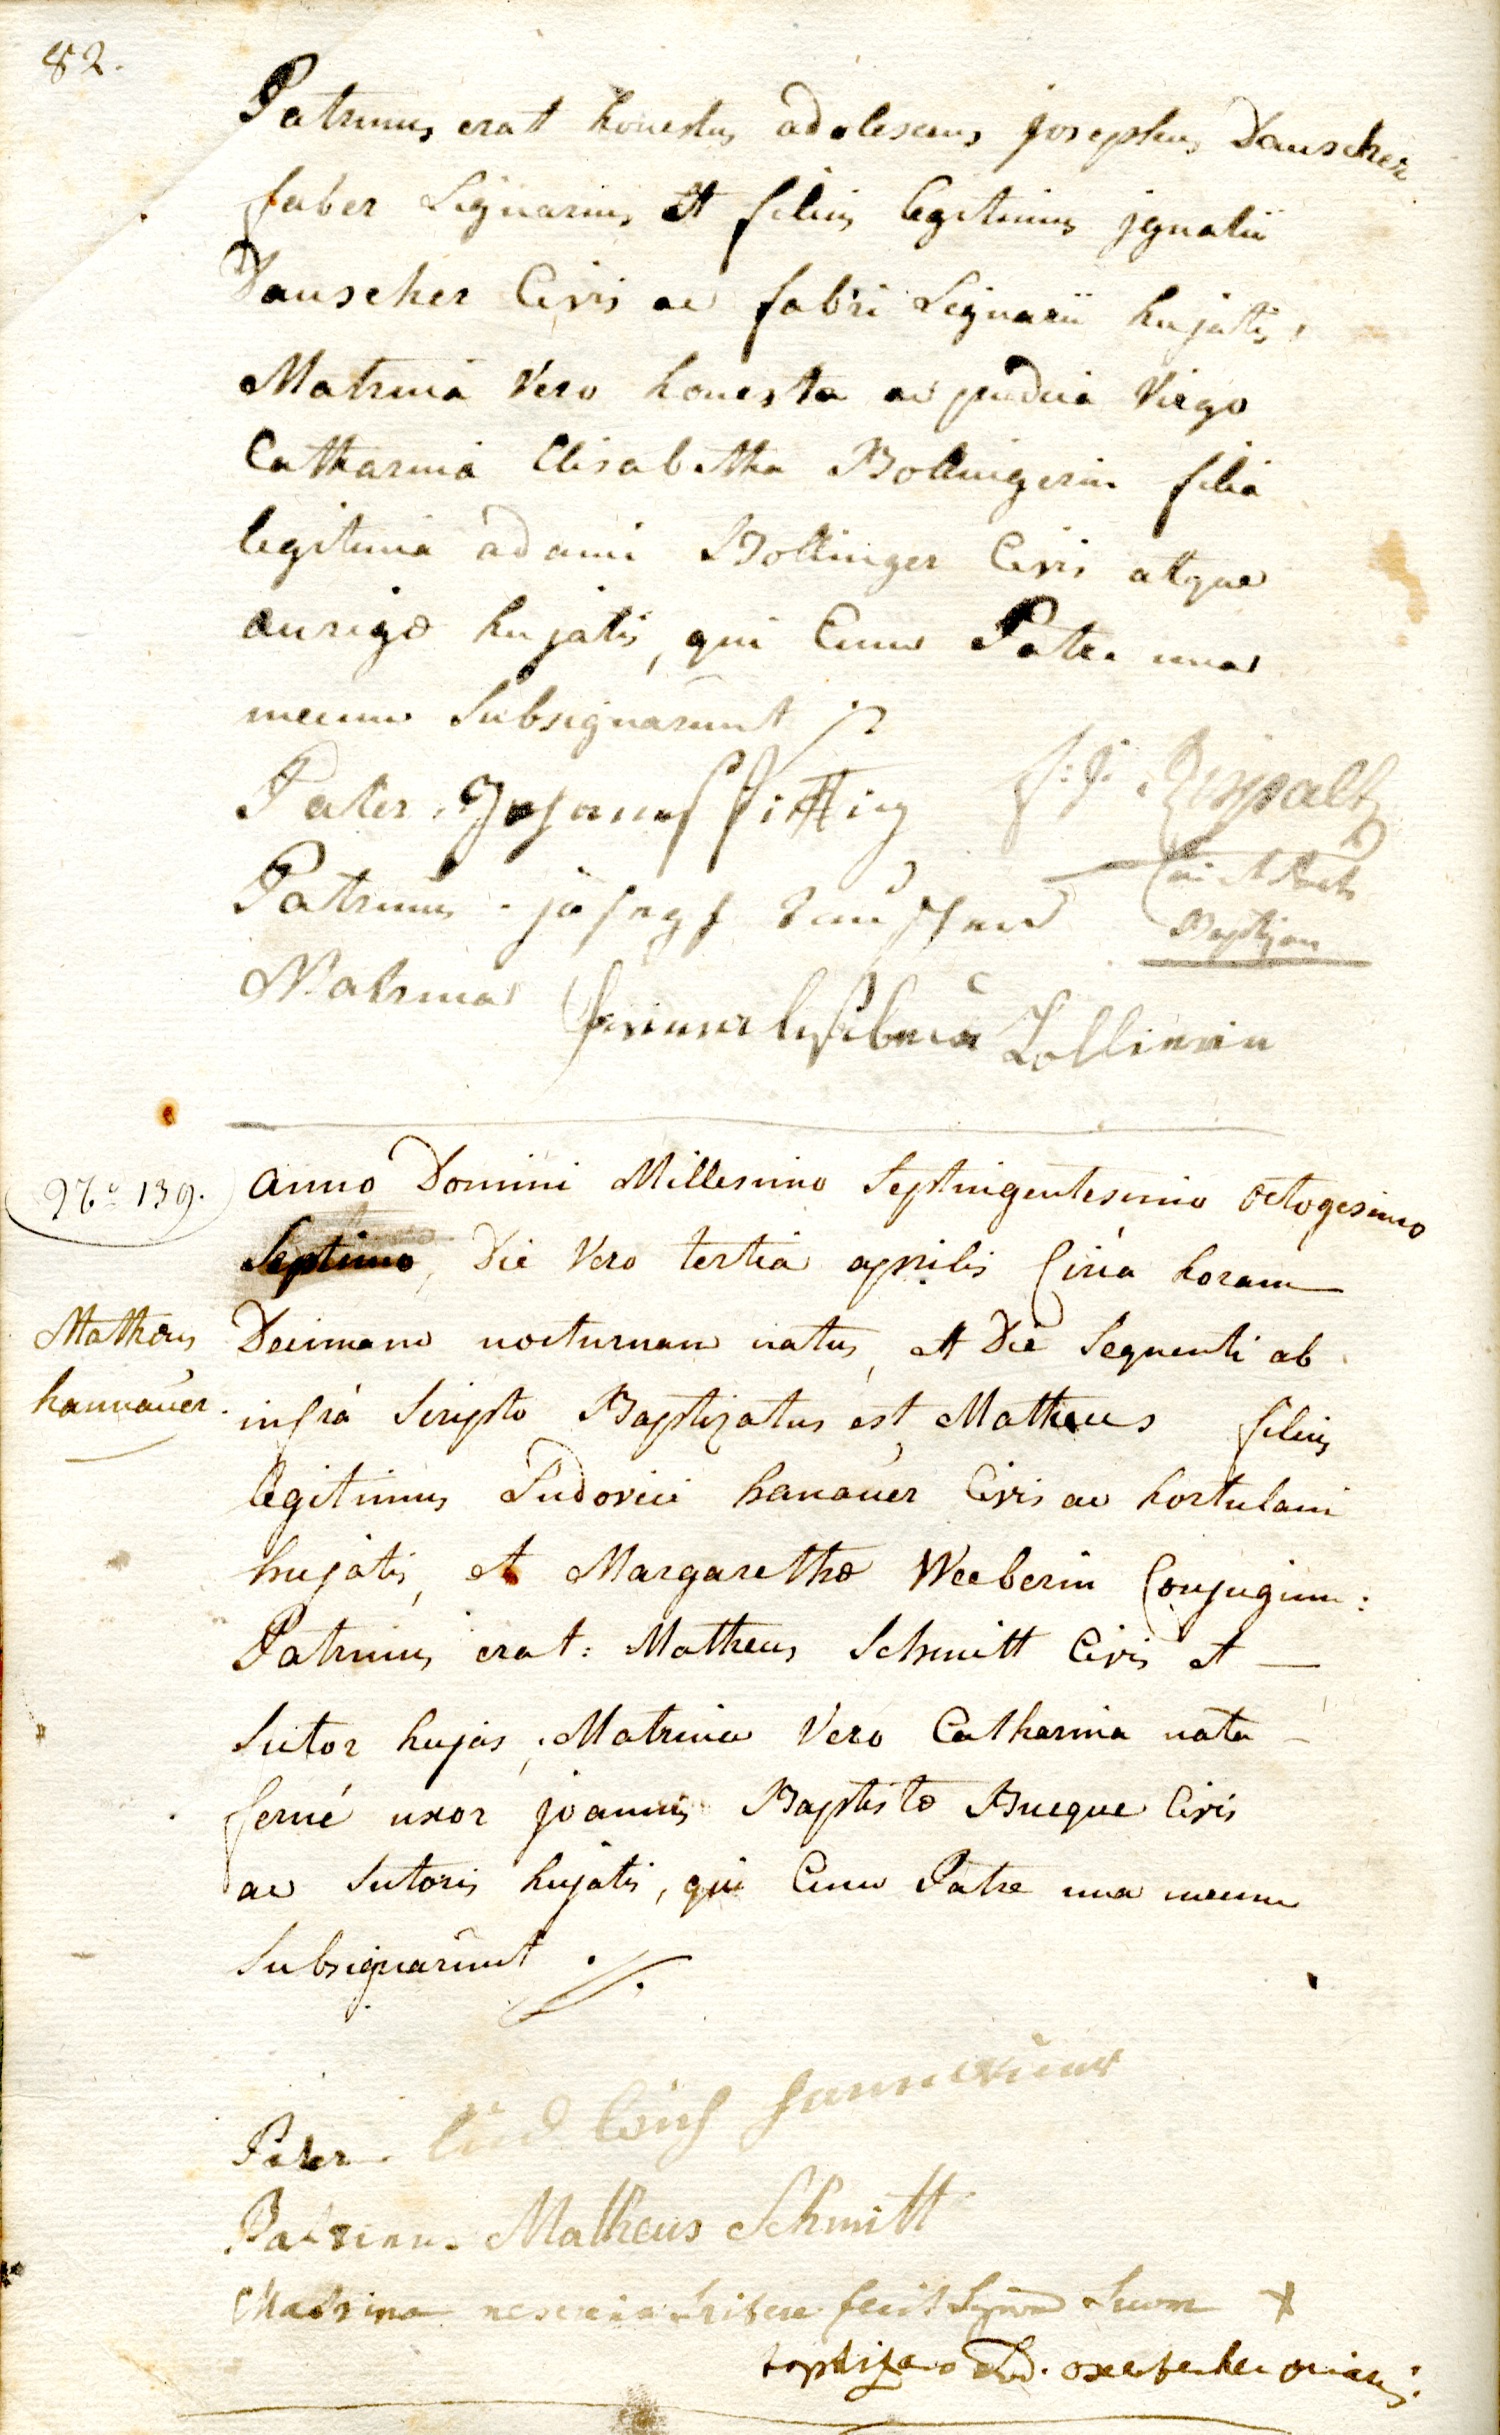 82.
Patrinus erat honestus adolescens josephus Dauscher
faber Lignarius et filius legitimus jgnatii
Dauscher Civis ac fabri Lignarii hujatis,
Matrina Vero honesta ac pudica Virgo
Catharina Elisabetha Bollingerin filia
legitima adami Bollinger Civis atque
aurigæ hujatis, qui Cum Patre una
mecum Subsignarunt
Pater Johannes
Patrinus joseph
Matrina
Baptizans
anno Domini Millesimo Septingentesimo octogesimo
Nº 139.
Septimo, Die Vero tertia aprilis Circa horam
Mathæus
hannauer.
Decimam nocturnam natus, et Die Sequenti ab
infra Scripto Baptizatus est Matheus filius
legitimus Ludovici hanauer Civis ac hortulani
hujatis, et Margarethæ Weeberin Conjugum:
Patrinus erat: Matheus Schmitt Civis et
Sutor hujas, Matrina Vero Catharina nata
ferné uxor joannis Baptistæ Bueque Civis
ac Sutoris hujatis, qui Cum Patre una mecum
Subsignarunt ./.
Pater Ludwich hannauer
Patrinus Matheus Schmitt
Matrina nescia scribere fecit Signum Suum +